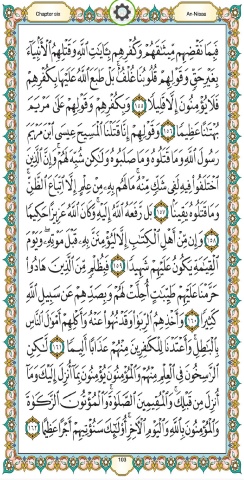 Chapter six
An-Nisaa
فَبِمَا نَقْضِهِم مِّيثَٰقَهُمْ وَكُفْرِهِم بِـَٔايَٰتِ ٱللَّهِ وَقَتْلِهِمُ ٱلْأَنۢبِيَآءَ
بِغَيْرِ حَقٍّ وَقَوْلِهِمْ قُلُوبُنَا غُلْفٌۢ بَلْ طَبَعَ ٱللَّهُ عَلَيْهَا بِكُفْرِهِمْ
فَلَا يُؤْمِنُونَ إِلَّا قَلِيلًا ١٥٥ وَبِكُفْرِهِمْ وَقَوْلِهِمْ عَلَىٰ مَرْيَمَ
بُهْتَٰنًا عَظِيمًا ١٥٦ وَقَوْلِهِمْ إِنَّا قَتَلْنَا ٱلْمَسِيحَ عِيسَى ٱبْنَ مَرْيَمَ
رَسُولَ ٱللَّهِ وَمَا قَتَلُوهُ وَمَا صَلَبُوهُ وَلَٰكِن شُبِّهَ لَهُمْ ۚ وَإِنَّ ٱلَّذِينَ
ٱخْتَلَفُوا۟ فِيهِ لَفِى شَكٍّ مِّنْهُ ۚ مَا لَهُم بِهِۦ مِنْ عِلْمٍ إِلَّا ٱتِّبَاعَ ٱلظَّنِّ ۚ
وَمَا قَتَلُوهُ يَقِينًۢا ١٥٧ بَل رَّفَعَهُ ٱللَّهُ إِلَيْهِ ۚ وَكَانَ ٱللَّهُ عَزِيزًا حَكِيمًا
١٥٨ وَإِن مِّنْ أَهْلِ ٱلْكِتَٰبِ إِلَّا لَيُؤْمِنَنَّ بِهِۦ قَبْلَ مَوْتِهِۦ ۖ وَيَوْمَ
ٱلْقِيَٰمَةِ يَكُونُ عَلَيْهِمْ شَهِيدًا ١٥٩ فَبِظُلْمٍ مِّنَ ٱلَّذِينَ هَادُوا۟
حَرَّمْنَا عَلَيْهِمْ طَيِّبَٰتٍ أُحِلَّتْ لَهُمْ وَبِصَدِّهِمْ عَن سَبِيلِ ٱللَّهِ
كَثِيرًا ١٦٠ وَأَخْذِهِمُ ٱلرِّبَوٰا۟ وَقَدْ نُهُوا۟ عَنْهُ وَأَكْلِهِمْ أَمْوَٰلَ ٱلنَّاسِ
بِٱلْبَٰطِلِ ۚ وَأَعْتَدْنَا لِلْكَٰفِرِينَ مِنْهُمْ عَذَابًا أَلِيمًا ١٦١ لَّٰكِنِ
ٱلرَّٰسِخُونَ فِى ٱلْعِلْمِ مِنْهُمْ وَٱلْمُؤْمِنُونَ يُؤْمِنُونَ بِمَآ أُنزِلَ إِلَيْكَ وَمَآ
أُنزِلَ مِن قَبْلِكَ ۚ وَٱلْمُقِيمِينَ ٱلصَّلَوٰةَ ۚ وَٱلْمُؤْتُونَ ٱلزَّكَوٰةَ
وَٱلْمُؤْمِنُونَ بِٱللَّهِ وَٱلْيَوْمِ ٱلْءَاخِرِ أُو۟لَٰٓئِكَ سَنُؤْتِيهِمْ أَجْرًا عَظِيمًا ١٦٢
103